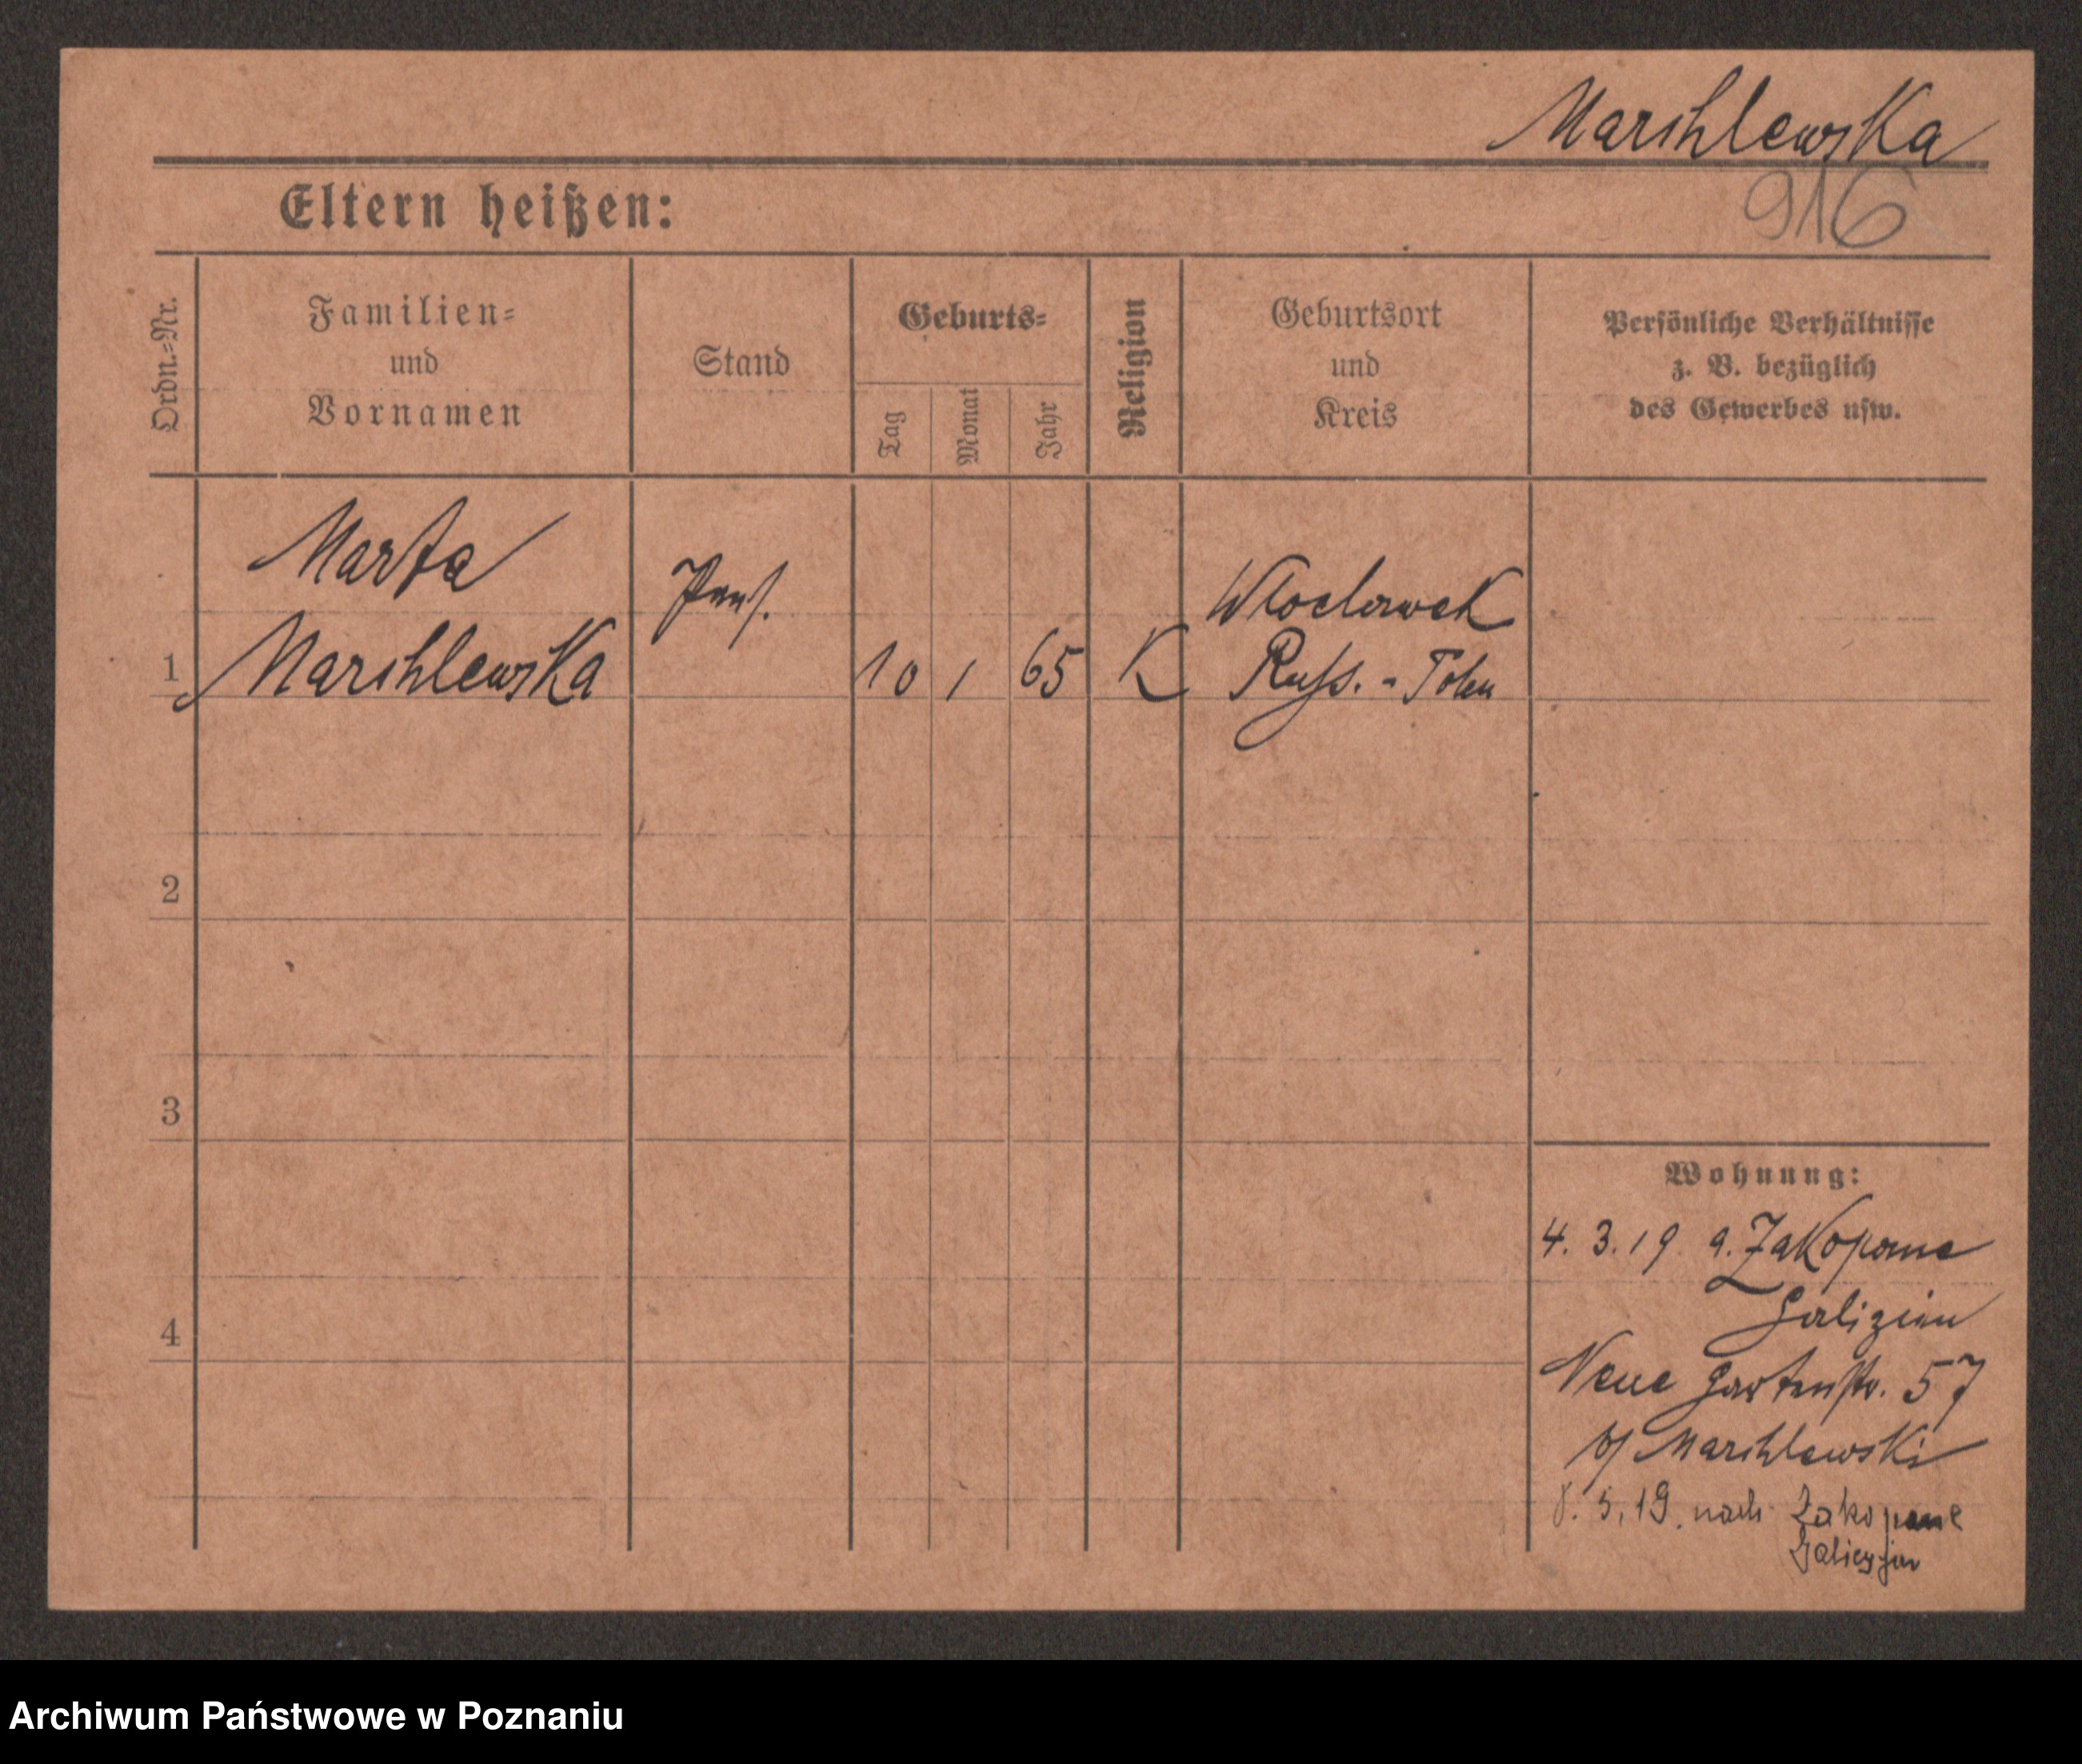 Marchlewska
916
Eltern heißen:
Ordn.=Nr.
Familien=
und
Vornamen
Stand
Geburts=
Tag
Monat
Jahr
Religion
Geburtsort
und
Kreis
Persönliche Verhältnisse
z. B. bezüglich
des Gewerbes usw.
Marta
1 Marchlewska 10 1 65 K
Wloclawek
Russ. - Polen
2
3
4
Wohnung:
4. 3. 19 a. Zakopane
Galizien
Neue Gartenstr. 57
b/ Marchlewski
5. 19. nach Zakopane
Archiwum Państwowe w Poznaniu